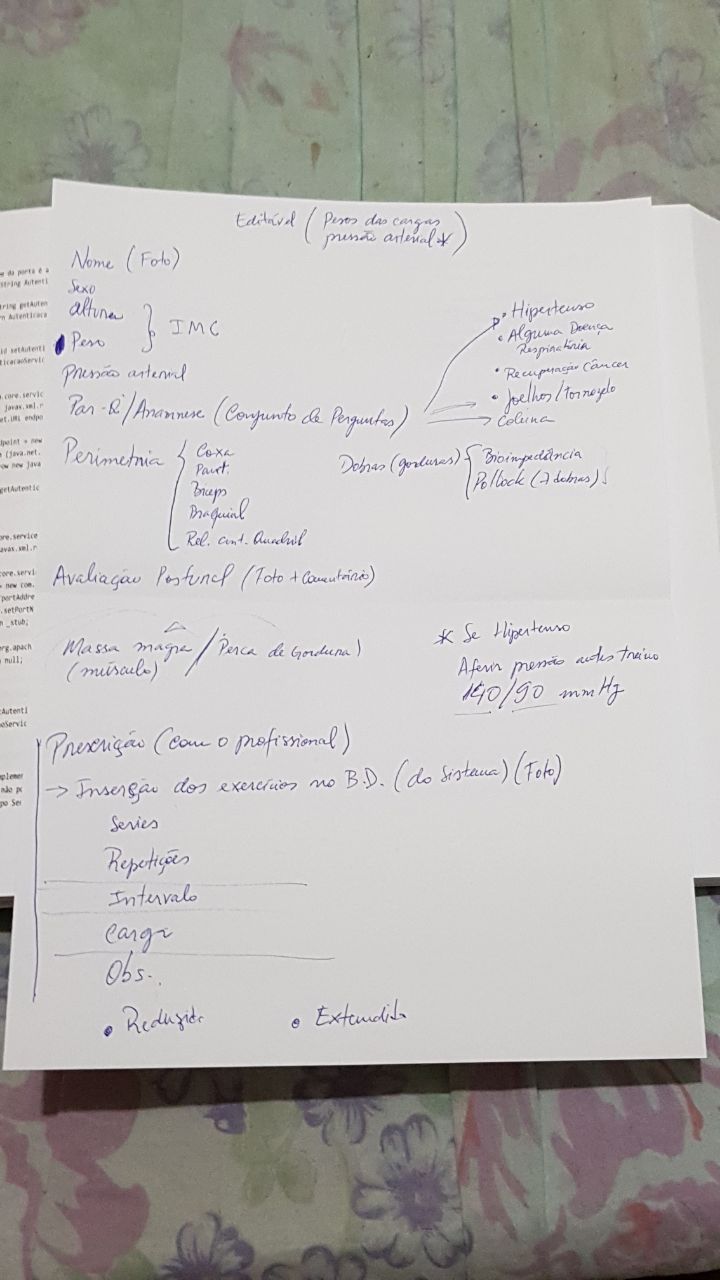 Editável (Pesos das cargas
pressão arterial *)
Nome (Foto)
Sexo
altura
Peso
} IMC
Pressão arterial
Par-Q / Anamnese (Conjunto de Perguntas)
• Hipertenso
• Alguma Doença
Respiratória
• Recuperação Câncer
• Joelhos/Tornozelo
Coluna
Perimetria {
Coxa
Pant.
Biceps
Braquial
Rel. cint. Quadril
Dobras (gorduras) {
Bioimpedância
Pollock (7 dobras)
Avaliação Postural (Foto + Comentários)
Massa magra / Perca de Gordura)
(músculo)
* Se Hipertenso
Aferir pressão antes treino
140/90 mmHg
Prescrição (com o profissional)
→ Inserção dos exercícios no B.D. (do Sistema) (Foto)
Series
Repetições
Intervalo
Carga
Obs..
• Reduzida
• Extendida
da porta é a
String Autenti
tring getAuten
rn Autenticaca
id setAutenti
ticacaoServic
.core.servic
javax.xml.r
et.URL endpo
dpoint = new
(java.net.
ow new java
getAutentic
ore.service
avax.xml.r
ore.servi
new com.
portAddre
.setPortN
_stub;
org.apach
null;
Autenti
oServic
plemen
não po
po Ser